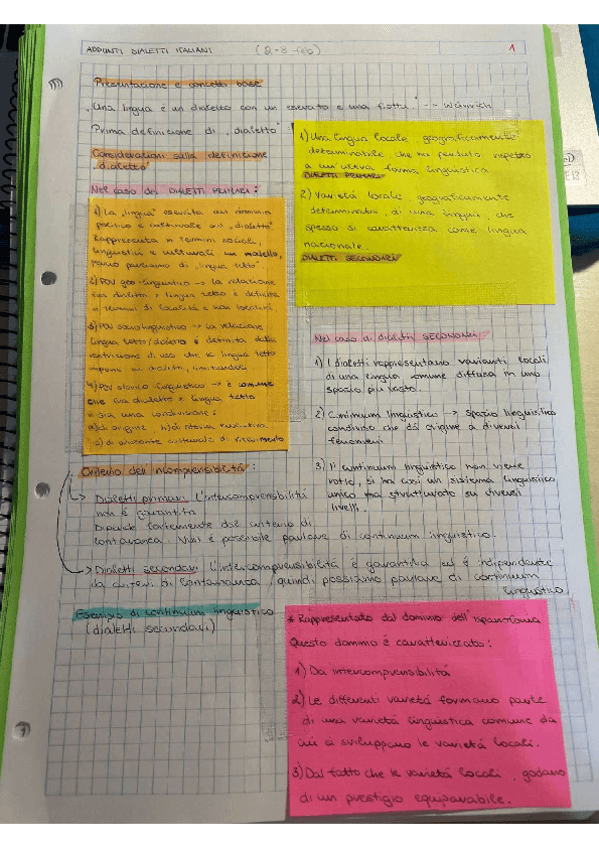 APPUNTI DIALETTI ITALIANI (2-3 Feb) 1
Presentazione e concetti base
"Una lingua è un dialetto con un esercito e una flotta" -- Weinreich
Prima definizione di "dialetto"
1) Una lingua locale, geograficamente
determinabile che ha perduto rispetto
a un'altra forma linguistica
DIALETTI PRIMARI
2) Varietà locale, geograficamente
determinata, di una lingua, che
spesso si caratterizza come lingua
nazionale.
DIALETTI SECONDARI
Considerazioni sulla definizione
"dialetto"
Nel caso dei DIALETTI PRIMARI:
1) La "lingua" esercita un dominio
politico e culturale sul "dialetto"
Rappresenta in termini sociali,
linguistici e culturali un modello,
parliamo di "lingua tetto".
2) POV geo-linguistico -> la relazione
tra dialetto e lingua tetto è definita
in termini di località e non località
3) POV sociolinguistico -> la relazione
lingua tetto/dialetto è definita dalle
restrizioni di uso che la lingua tetto
impone ai dialetti, limitandoli
4) POV storico linguistico -> è comune
che tra dialetto e lingua tetto
ci sia una condivisione:
a) di origine, b) di
c) di orizzonte culturale di riferimento
Nel caso di dialetti SECONDARI
1) I dialetti rappresentano varianti locali
di una lingua comune diffusa in uno
spazio più vasto.
2) Continuum linguistico -> spazio linguistico
condiviso che dà origine a diversi
fenomeni
3) Il continuum linguistico non viene
rotto, si ha così un sistema linguistico
unico ma strutturato su diversi
livelli.
Criterio dell'incomprensibilità:
Dialetti primari: l'intercomprensibilità
non è garantita
Dipende fortemente dal criterio di
lontananza. Non è possibile parlare di continuum linguistico.
Dialetti secondari: l'intercomprensibilità è garantita ed è indipendente
da criteri di lontananza, quindi possiamo parlare di continuum
linguistico
Esempio di continuum linguistico
(dialetti secondari)
* Rappresentato dal dominio dell'ispanofonia
Questo dominio è caratterizzato:
1) Da intercomprensibilità
2) Le differenti varietà formano parte
di una varietà linguistica comune da
cui si sviluppano le varietà locali.
3) Dal fatto che le varietà locali, godano
di un prestigio equiparabile.